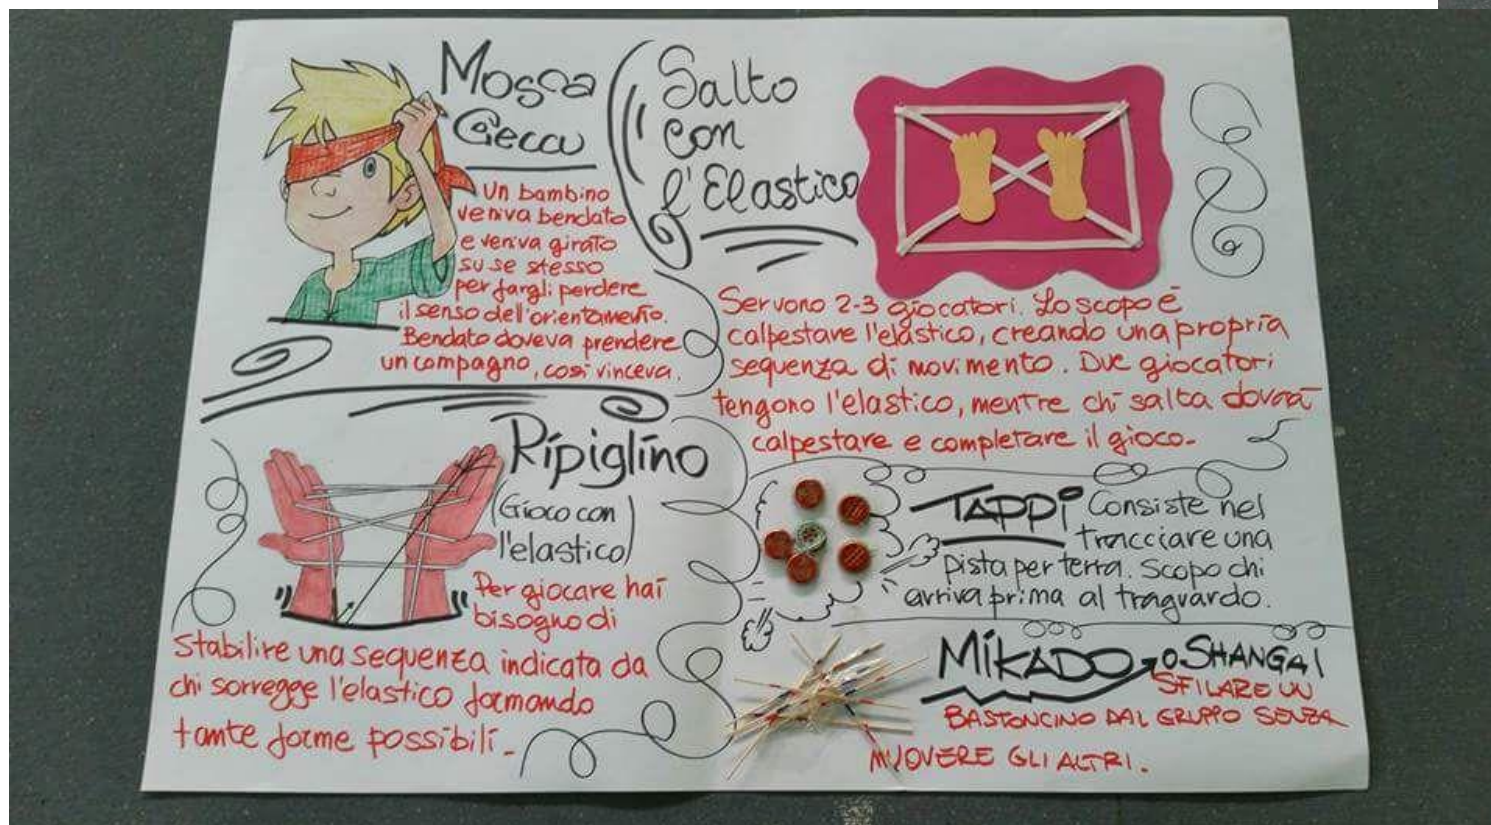 Mosca
Cieca
Un bambino
veniva bendato
e veniva girato
su se stesso
per fargli perdere
il senso dell'orientamento.
Bendato doveva prendere
un compagno, così vinceva.
Salto
con
l'Elastico
Servono 2-3 giocatori. Lo scopo è
calpestare l'elastico, creando una propria
sequenza di movimento. Due giocatori
tengono l'elastico, mentre chi salta dovrà
calpestare e completare il gioco-
Ripiglino
(Gioco con
l'elastico)
Per giocare hai
bisogno di
stabilire una sequenza indicata da
chi sorregge l'elastico formando
tante forme possibili-
TAPPi Consiste nel
tracciare una
pista per terra. Scopo chi
arriva prima al traguardo.
MiKADO o SHANGAI
SFILARE UN
BASTONCINO DAL GRUPPO SENZA
MUOVERE GLI ALTRI.